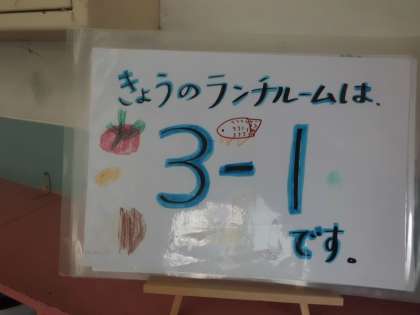 きょうのランチルームは、
3-1
です。